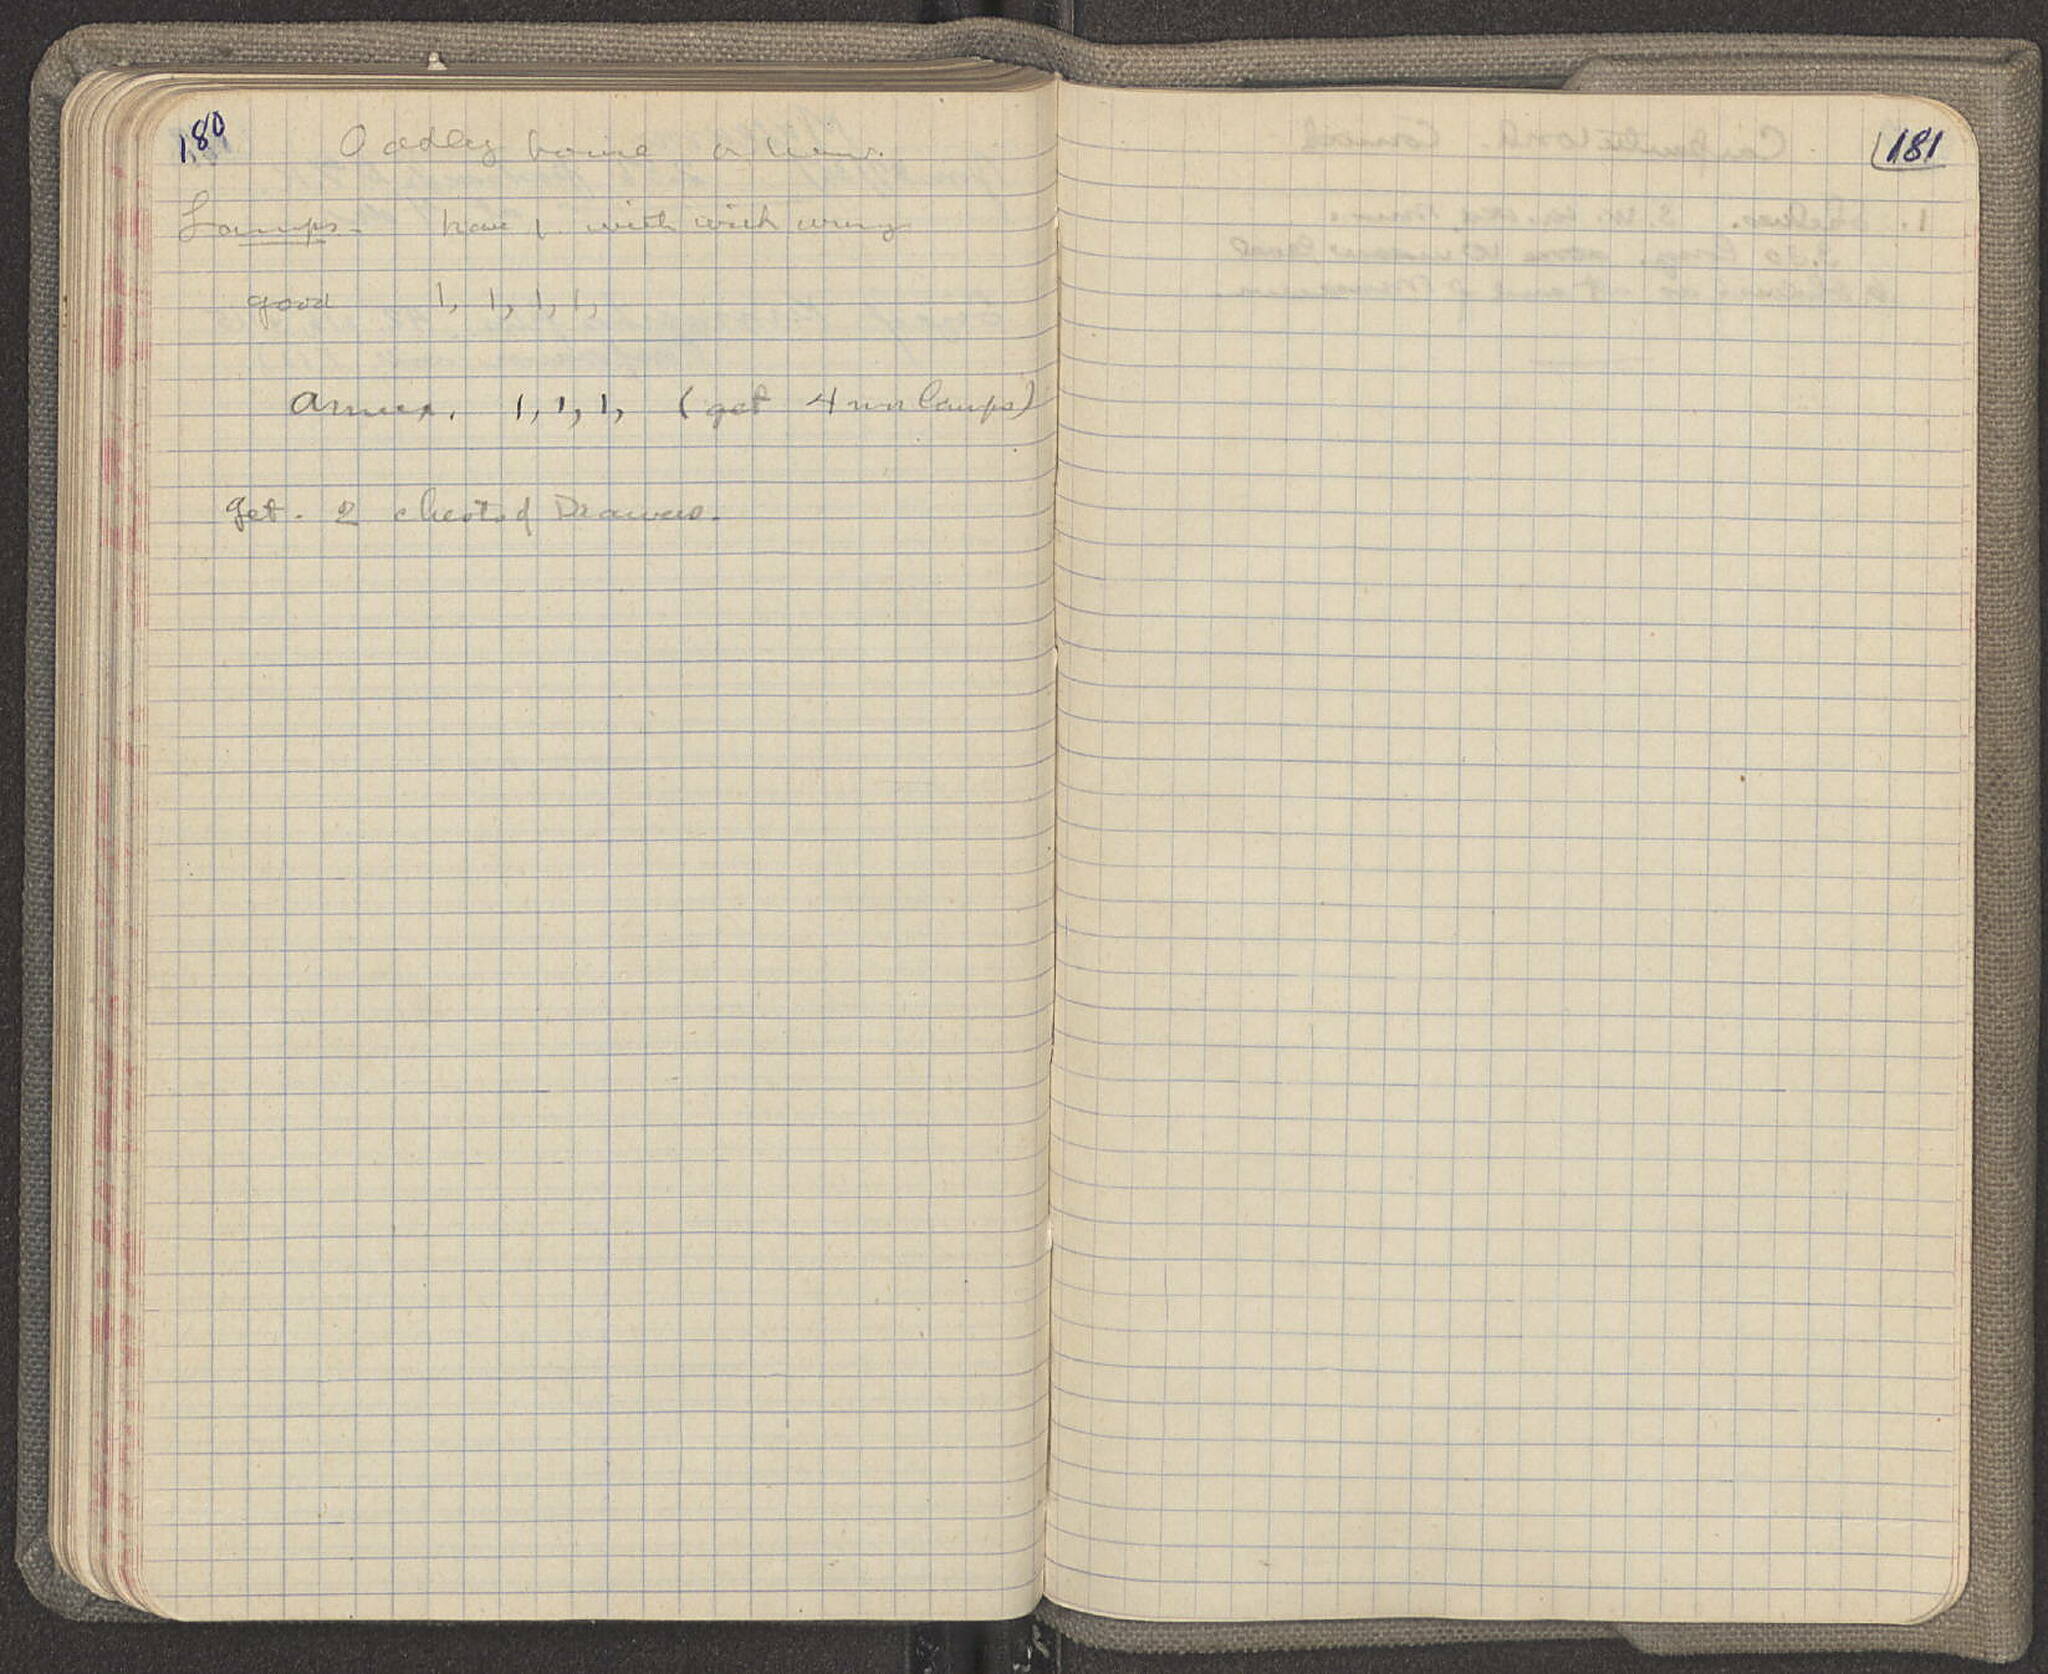 180
Oakley house
Lamps. have 1 with wick wrong
good 1, 1, 1, 1,
annex. 1, 1, 1, (get 4 mr lamps)
get. 2 chests of Drawers.
181